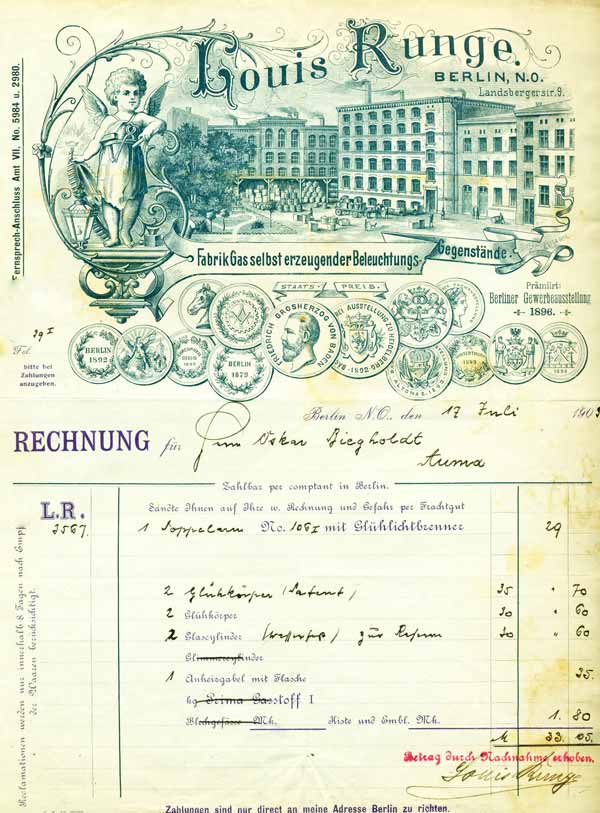 Louis Runge.
BERLIN, N.O.
Landsbergerstr. 9.
Fernsprech-Anschluss Amt VII. No. 5984 u. 2980.
Fabrik Gas selbst erzeugender Beleuchtungs-Gegenstände.
STAATS- PREIS.
Prämiirt:
Berliner Gewerbeausstellung
1896.
FRIEDRICH GROSHERZOG VON BADEN
BERLIN 1892
BERLIN 1879
Fol.
bitte bei
Zahlungen
anzugeben.
Berlin N.O., den 17 Juli
RECHNUNG für Herrn Oskar Biegholdt
Auma
Zahlbar per comptant in Berlin.
L.R.
Sandte Ihnen auf Ihre w. Rechnung und Gefahr per Frachtgut
3567. 1 No. 106 I mit Glühlichtbrenner 29
2 Glühkörper (Patent) 35 " 70
2 Glühkörper 30 " 60
2 Glascylinder zur Reserve 30 " 60
Glimmercylinder
1 Anheizgabel mit Flasche 35.
kg Prima Gasstoff I
Blechgefässe Mk. Kiste und Embl. Mk. 1. 80
M 33. 05.
Betrag durch Nachnahme erhoben.
Louis Runge
Reclamationen werden nur innerhalb 8 Tagen nach Empf.
der Waaren berücksichtigt.
Zahlungen sind nur direct an meine Adresse Berlin zu richten.